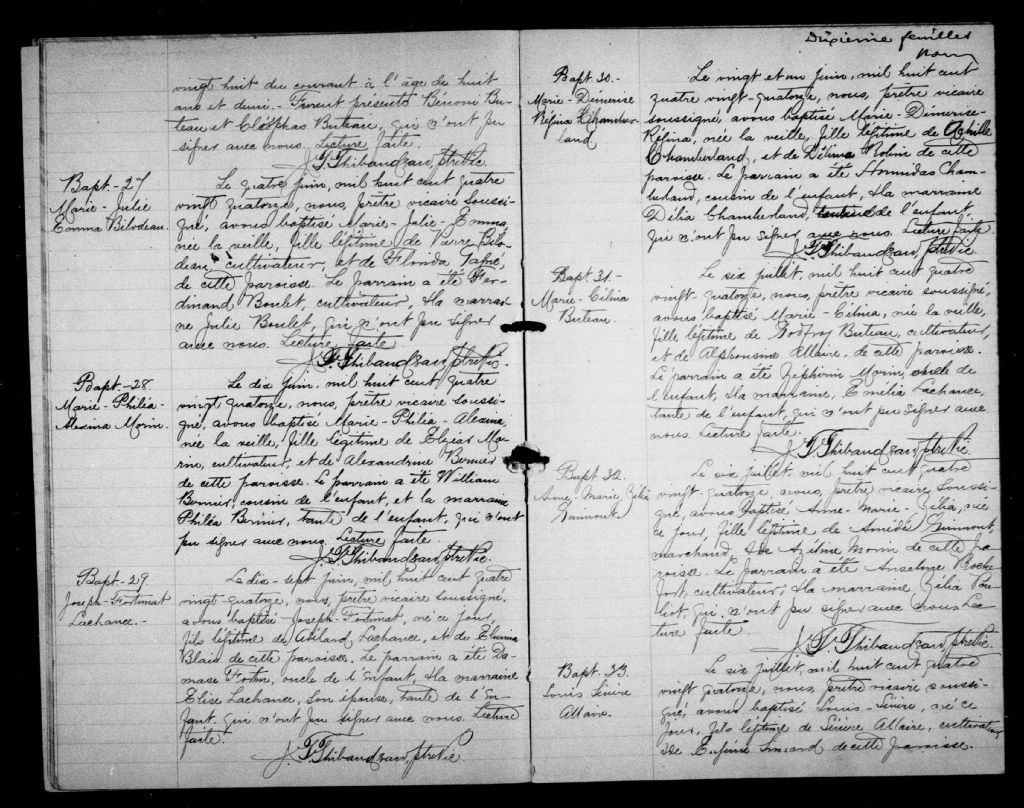 vingt huit du courant à l'âge de huit
ans et demi. - Furent présents Bénoni Bu-
teau et Cléophas Buteau, qui n'ont pu
signer avec nous. Lecture faite.
J. F. Thibaudeau, Ptre Vic.
Bapt. - 27
Marie - Julie
Emma Bilodeau.
Le quatre juin, mil huit cent quatre
vingt quatorze, nous, prêtre vicaire soussi-
gné, avons baptisé Marie - Julie - Emma,
née la veille, fille légitime de Pierre Bilo-
deau, cultivateur, et de Florida
de cette paroisse. Le parrain a été Fer-
dinand Boulet, cultivateur, & la marrai-
ne Julie Boulet, qui n'ont pu signer
avec nous. Lecture faite
J. F. Thibaudeau, Ptre Vic.
Bapt. - 28
Marie - Philéa -
Alexina Morin.
Le dix juin, mil huit cent quatre
vingt quatorze, nous, prêtre vicaire soussi-
gné, avons baptisé Marie - Philéa - Alexina,
née la veille, fille légitime de Elzéar Mo-
rin, cultivateur, et de Alexandrine Bernier
de cette paroisse. Le parrain a été William
Bernier, cousin de l'enfant, et la marraine
Philéa Bernier, tante de l'enfant, qui n'ont
pu signer avec nous. Lecture faite.
J. F. Thibaudeau, Ptre Vic.
Bapt. - 29.
Joseph - Fortunat
Lachance. -
Le dix - sept juin, mil huit cent quatre
vingt-quatorze, nous, prêtre vicaire soussigné,
avons baptisé Joseph - Fortunat, né ce jour,
fils légitime de Abélard Lachance, et de Elmina
Blais de cette paroisse. Le parrain a été Da-
mase Fortin, oncle de l'enfant, & la marraine
Elise Lachance, son épouse, tante de l'en-
fant. qui n'ont pu signer avec nous. Lecture
faite.
J. F. Thibaudeau, Ptre Vic.
Dixième feuillet
Bapt 30. -
Marie - Démerise
Régina Chamber-
land
Le vingt et un juin, mil huit cent
quatre vingt-quatorze, nous, prêtre vicaire
soussigné, avons baptisé Marie - Démerise -
Régina, née la veille, fille légitime de Achille
Chamberland, et de Délima Robin de cette
paroisse. Le parrain a été Hormidas Cham-
berland, cousin de l'enfant, & la marraine
Délia Chamberland, de l'enfant.
qui n'ont pu signer avec nous. Lecture faite
J. F. Thibaudeau, Ptre Vic.
Bapt 31. -
Marie - Célina
Buteau.
Le six juillet, mil huit cent quatre
vingt-quatorze, nous, prêtre vicaire soussigné,
avons baptisé Marie - Célina, née la veille,
fille légitime de Godfroy Buteau, cultivateur,
et de Alphonsine Allaire, de cette paroisse.
Le parrain a été Zéphirin Morin, oncle de
l'enfant, & la marraine, Emélia Lachance,
tante de l'enfant, qui n'ont pu signer avec
nous. Lecture faite.
J. F. Thibaudeau, Ptre Vic.
Bapt 32.
Anne, Marie Zélia
Guimont.
Le six juillet, mil huit cent quatre
vingt-quatorze, nous, prêtre vicaire soussi-
gné, avons baptisé Anne - Marie - Zélia, née
ce jour, fille légitime de Amédé Guimont,
marchand, & de Azélina Morin de cette pa-
roisse. Le parrain a été Anselme Roche-
fort, cultivateur, & la marraine Zélia Pou-
liot, qui n'ont pu signer avec nous. Lec-
ture faite
J. F. Thibaudeau, Ptre Vic.
Bapt. 33.
Louis Sévère
Allaire.
Le six juillet, mil huit cent quatre
vingt quatorze, nous, prêtre vicaire soussi-
gné, avons baptisé Louis - Sévère, né ce
jour, fils légitime de Sévère Allaire, cultivateur,
& de Eugénie Simard de cette paroisse.